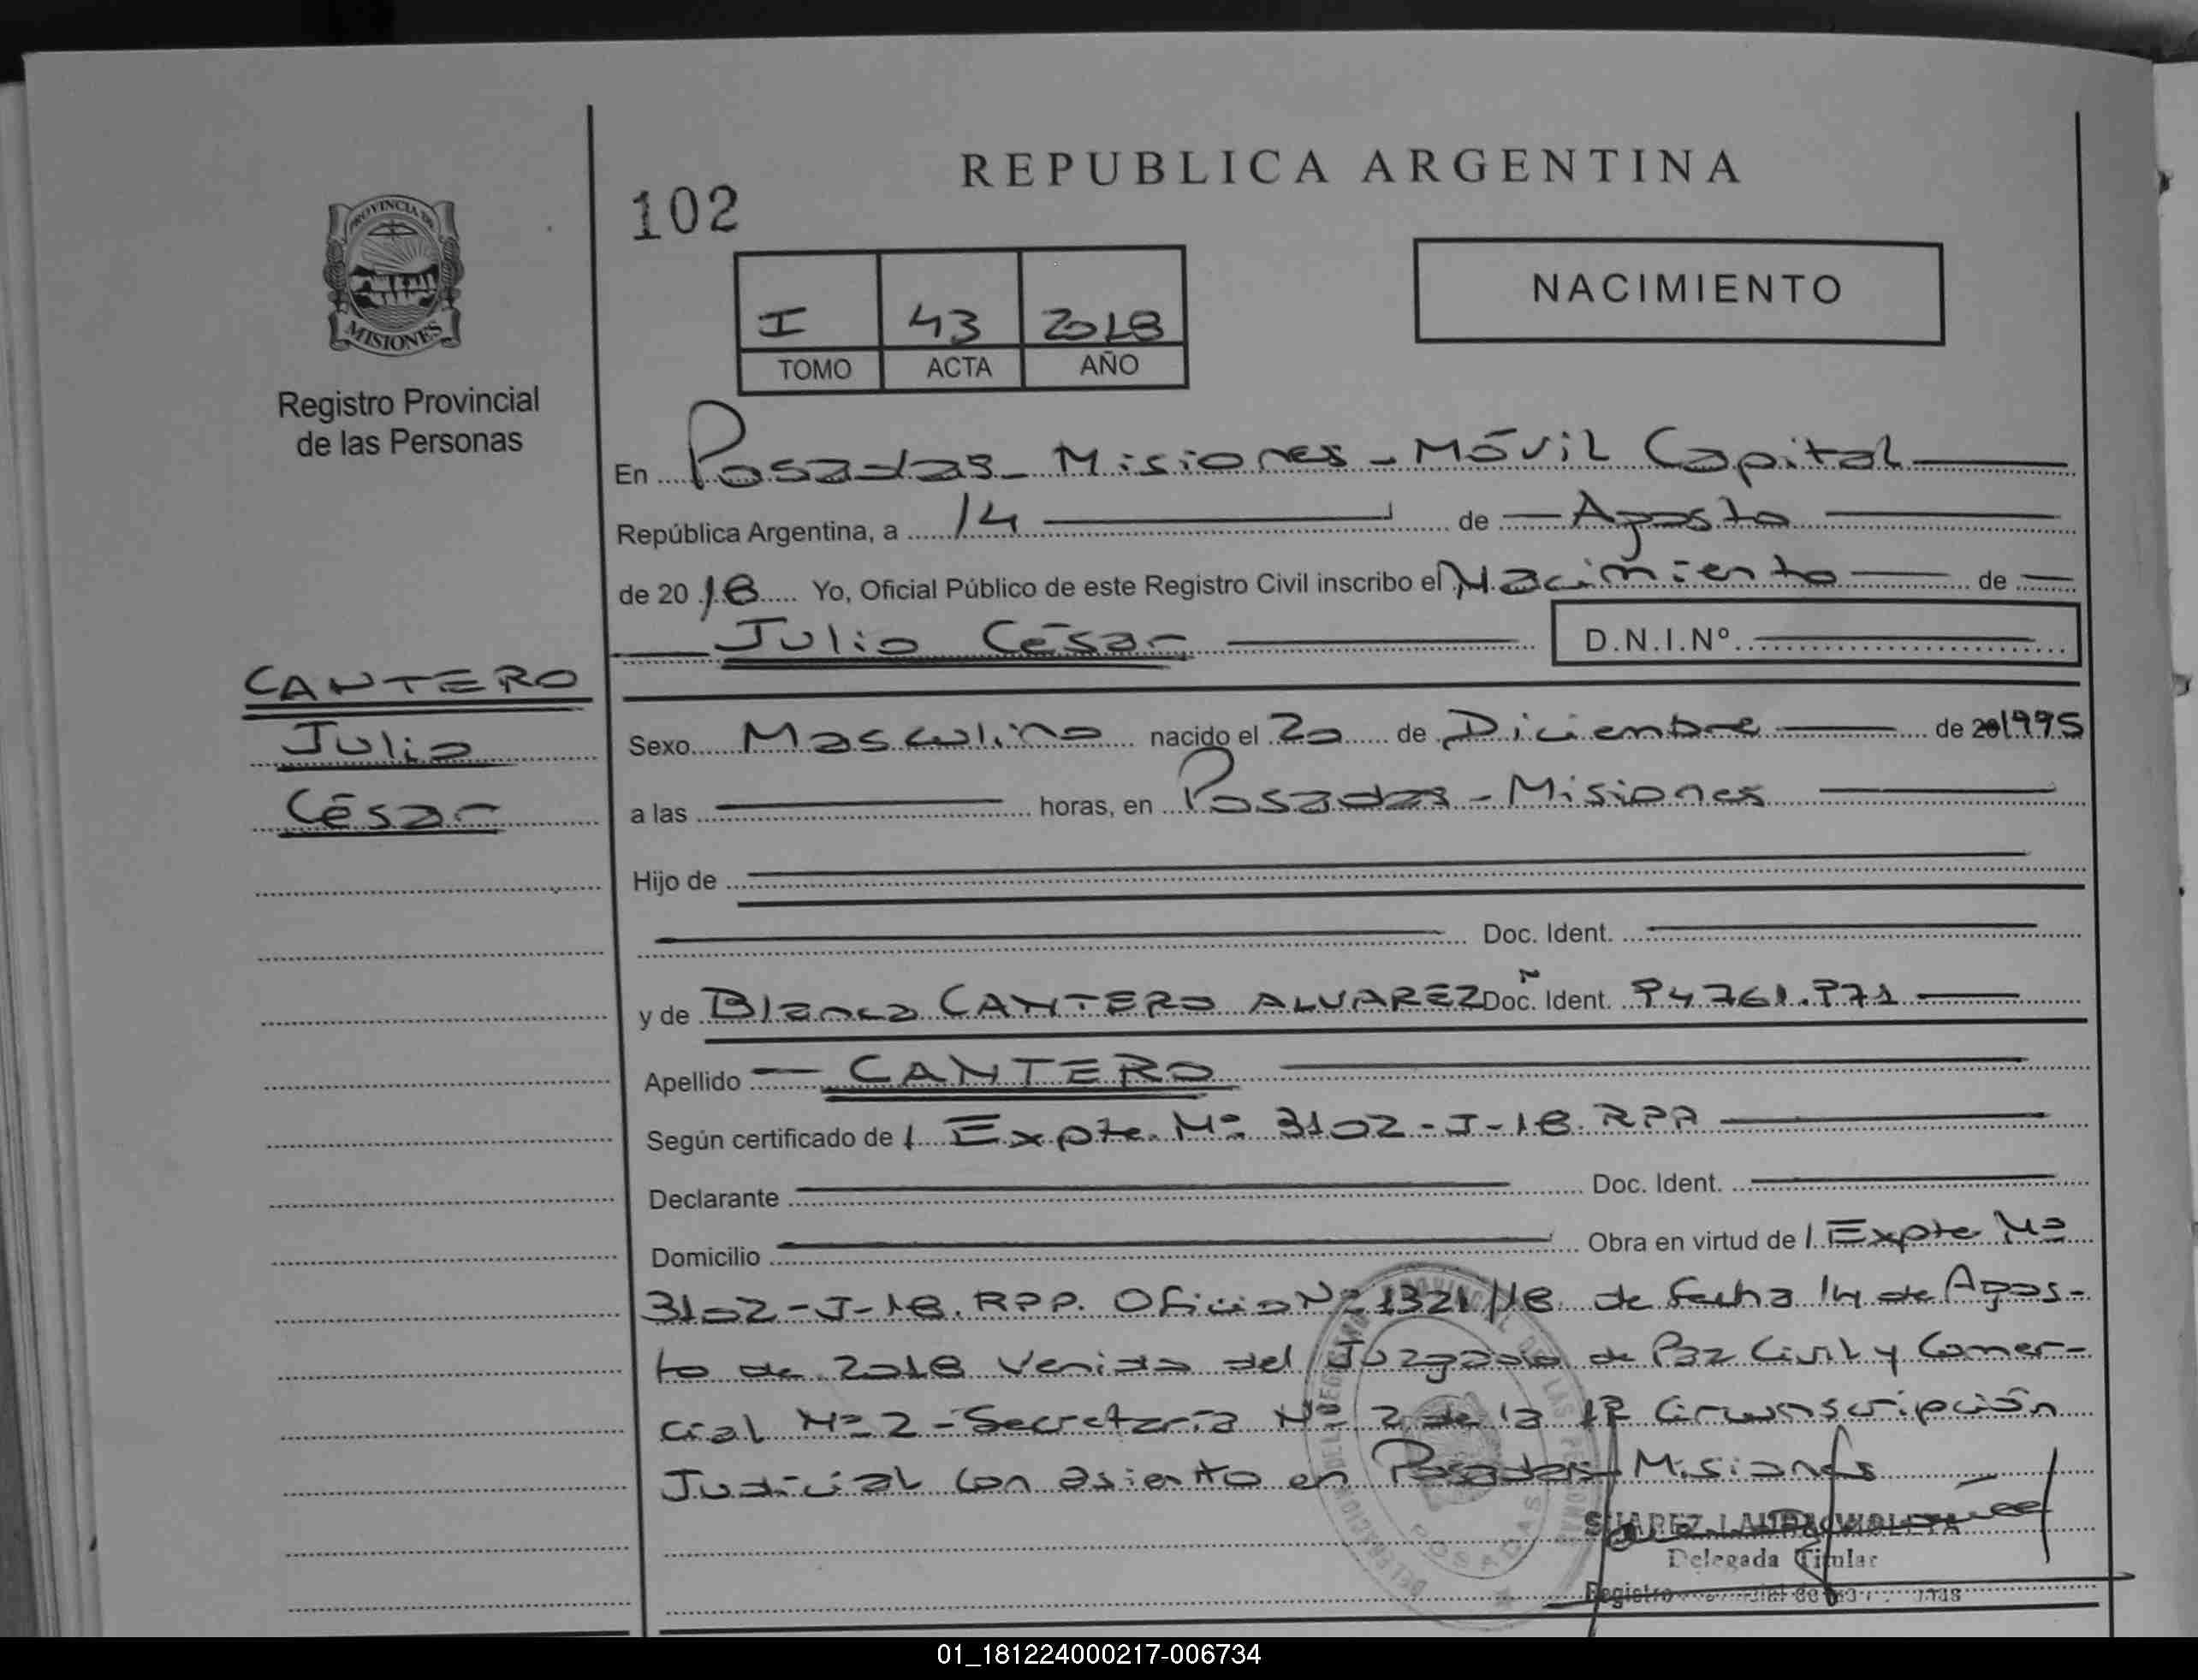 REPUBLICA ARGENTINA
102
PROVINCIA DE
MISIONES
Registro Provincial
de las Personas
I 43 2018
TOMO ACTA AÑO
NACIMIENTO
En Posadas - Misiones - Móvil Capital
República Argentina, a 14 de Agosto
de 2018 Yo, Oficial Público de este Registro Civil inscribo el Nacimiento de
Julio César D.N.I.Nº
CANTERO
Julio
César
Sexo Masculino nacido el 20 de Diciembre de 1995
a las horas, en Posadas - Misiones
Hijo de
Doc. Ident.
y de Blanca CANTERO ALVAREZ Doc. Ident. 94761.971
Apellido CANTERO
Según certificado de / Expte. Nº 3102-J-18. RPP
Declarante Doc. Ident.
Domicilio Obra en virtud de / Expte Nº
3102-J-18. RPP. Oficio Nº 1321/18 de fecha 14 de Agos-
to de 2018 Venido del Juzgado de Paz Civil y Comer-
cial Nº 2 - Secretaría Nº 2 de la 1ª Circunscripción
Judicial con asiento en Posadas Misiones
POSADAS
SUAREZ LAURA VIOLETA
Delegada Titular
Registro
01_181224000217-006734